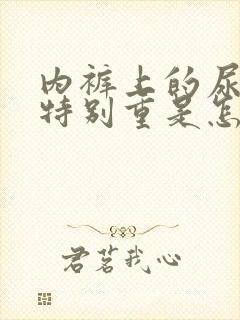 内裤上的尿
特别重是怎
君茗我心